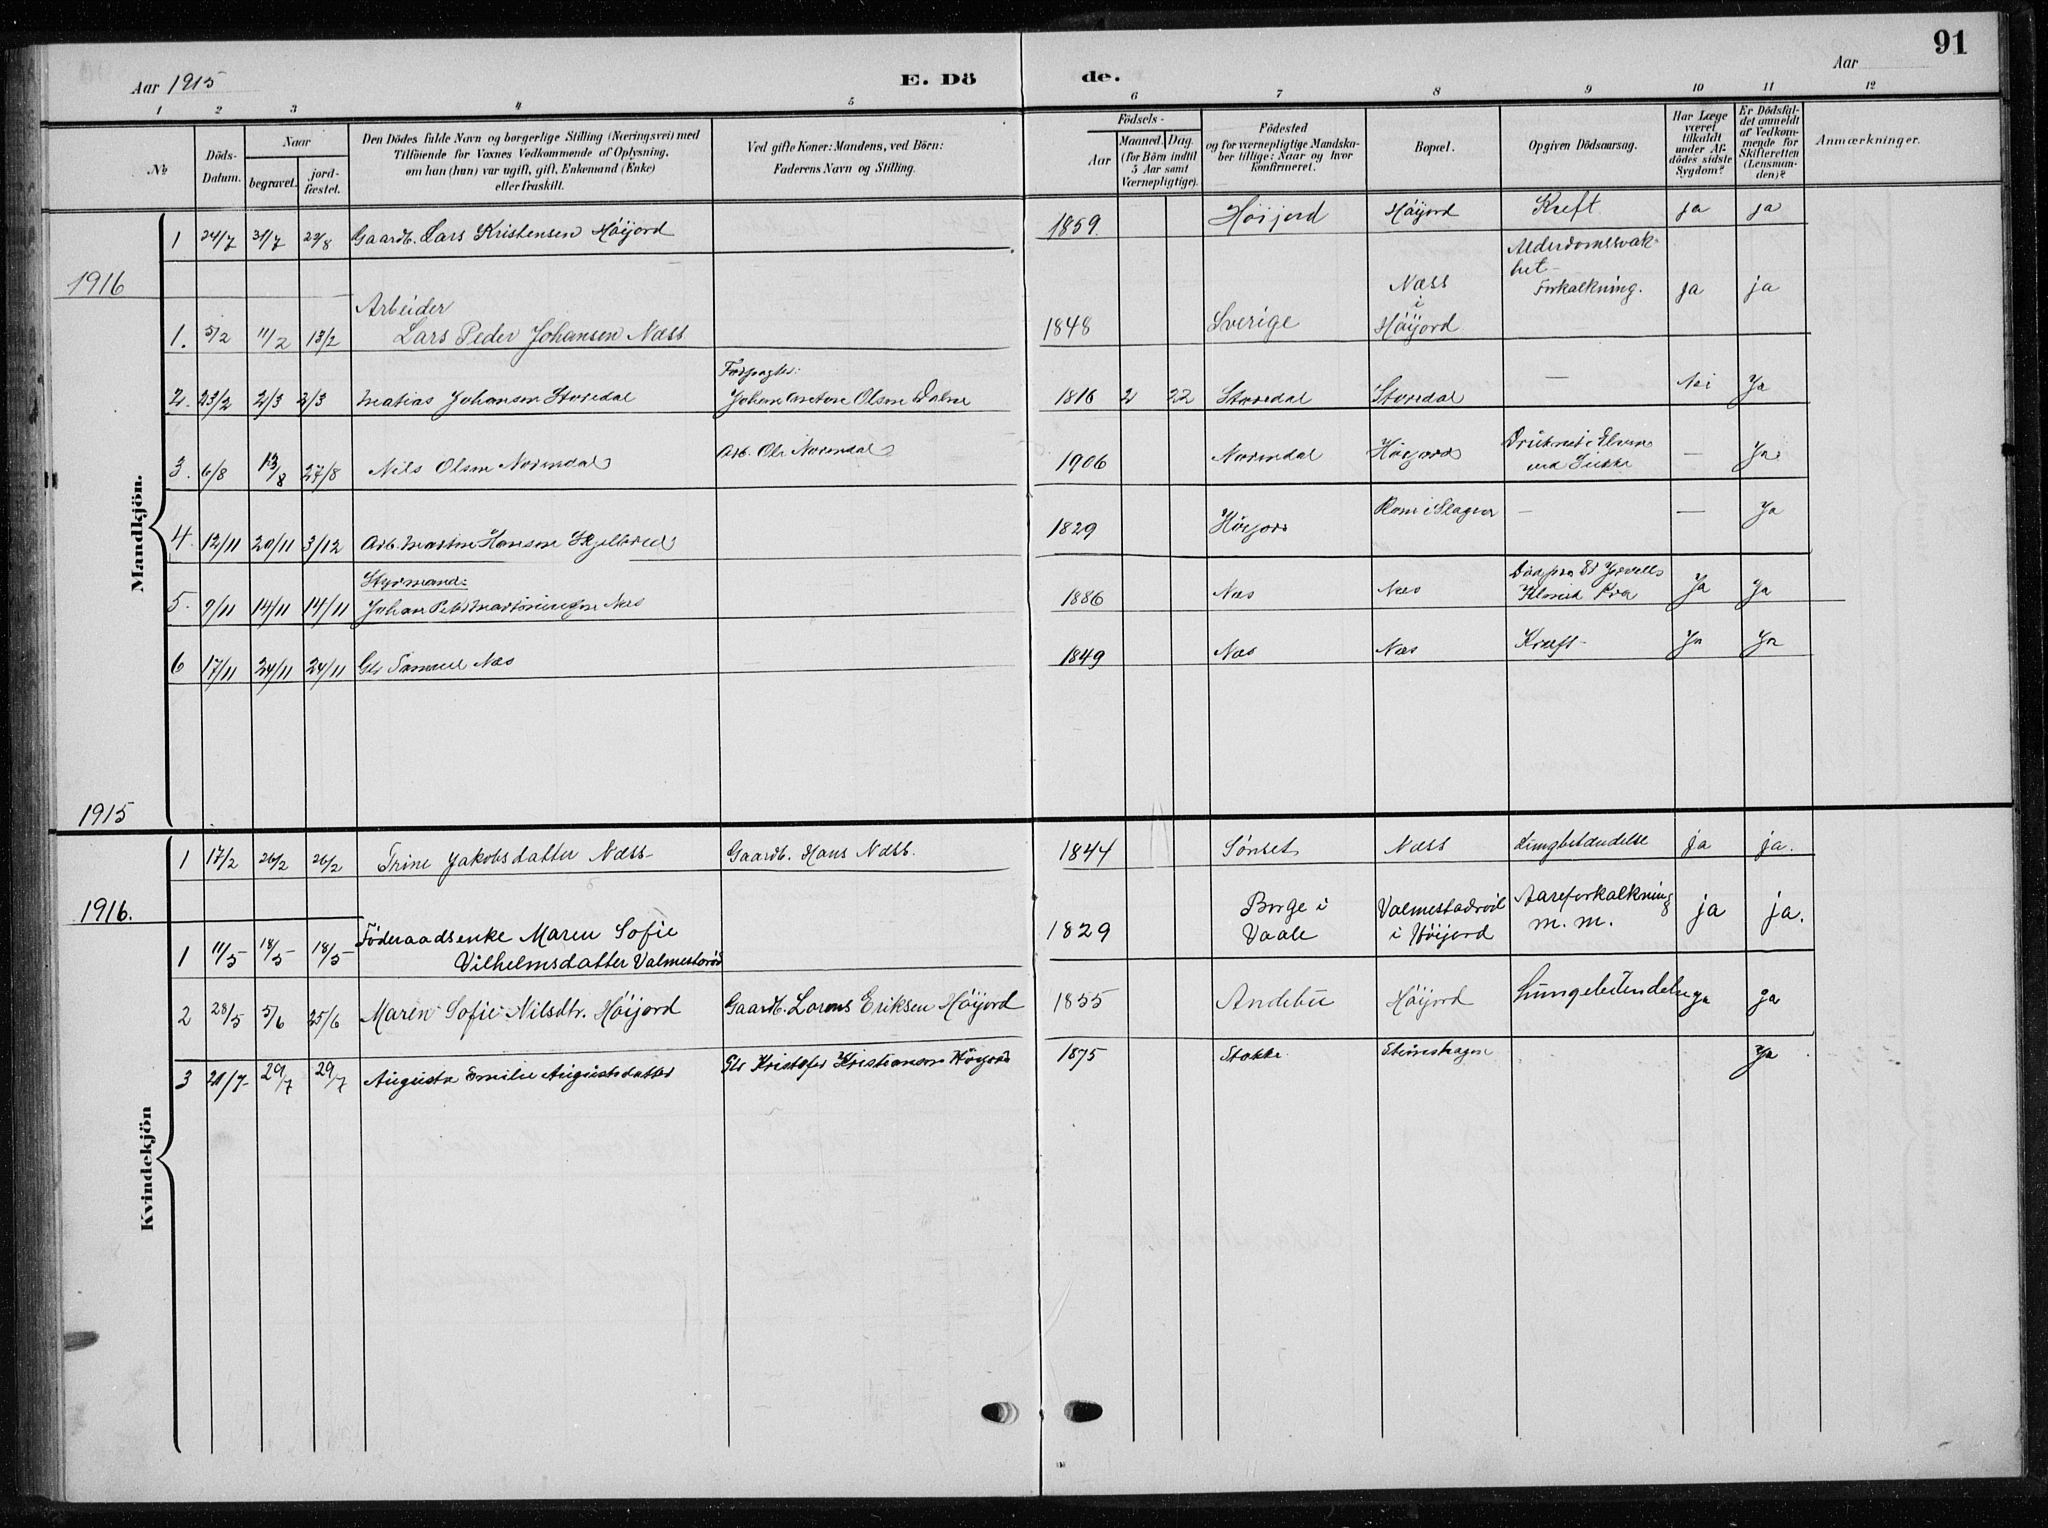 91
Aar 1915 E. Dö de. Aar
1 2 3 4 5 6 7 8 9 10 11 12
№ Döds-Datum. Naar begravet. jord-fæstet. Den Dödes fulde Navn og borgerlige Stilling (Næringsvei) med Tilföiende for Voxnes Vedkommende af Oplysning. om han (hun) var ugift, gift, Enkemand (Enke) eller fraskilt. Ved gifte Koner: Mandens, ved Börn: Faderens Navn og Stilling. Födsels- Aar Maaned. Dag. (for Börn indtil 5 Aar samt Værnepligtige). Födested og for værnepligtige Mandskaber tillige: Naar og hvor Konfirmeret. Bopæl. Opgiven Dödsaarsag. Har Læge været tilkaldt under Afdödes sidste Sygdom? Er Dödsfaldet anmeldt af Vedkommende for Skifteretten (Lensmanden)? Anmærkninger.
Mandkjön.
1 24/7 31/7 22/8 Gaardb. Lars Kristensen Höijord 1859. Höijord Höijord Kreft. ja ja
1916
1. 5/2 11/2 13/2 Arbeider Lars Peder Johansen Næss 1848 Sverige Næss i Höijord Alderdomssvakhet- Forkalkning. ja ja
2. 23/2 2/3 2/3 Matias Johansen Storedal Forpagter: Johan Anton Olsen 1816 2 22 Storedal Storedal — Nei Ja
3. 6/8 13/8 27/8 Nils Olsen Normdal Arb. Ole Normdal 1906 Normdal Höijord Druknet i Elven ved — Ja
4. 12/11 20/11 3/12 Arb. Martin Hansen 1829 Höijord Rom i Slagen — — Ja
5. 9/11 14/11 14/11 Styrmand: Johan Næs 1886 Næs Næs Ja Ja
6 17/11 24/11 24/11 Samuel Næs 1849 Næs Næs Kræft Ja Ja
1915
Kvindekjön
1 17/2 26/2 26/2 Trine Jakobsdatter Næss Gaardb. Hans Næss. 1844 Sönset Næss Lungbetændelse ja ja.
1916.
1 11/5 18/5 18/5 Föderaadsenke Maren Sofie Vilhelmsdatter Valmestaröd 1829 Borge i Vaale Valmestadröd i Höijord Aareforkalkning m. m. ja ja.
2 28/5 5/6 25/6 Maren Sofie Nilsdtr. Höijord Gaardb. Lorens Eriksen Höijord 1855 Andebu Höijord Lungebetendelse ja ja
3 21/7 29/7 29/7 Augusta Emilie Augustsdatter Kristofer Kristiansen Höijord 1875 Stokke Ja